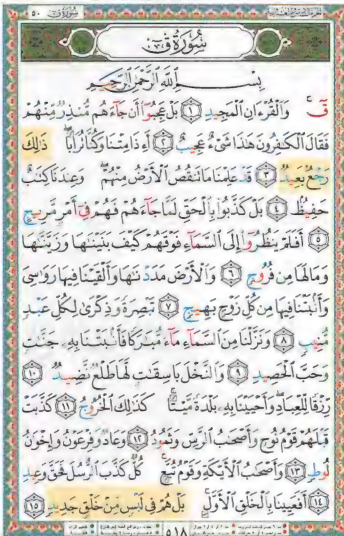 سُورَةُ قٓ
بِسْمِ ٱللَّهِ ٱلرَّحْمَٰنِ ٱلرَّحِيمِ
قٓ ۚ وَٱلْقُرْءَانِ ٱلْمَجِيدِ ١ بَلْ عَجِبُوٓا۟ أَن جَآءَهُم مُّنذِرٌ مِّنْهُمْ
فَقَالَ ٱلْكَٰفِرُونَ هَٰذَا شَىْءٌ عَجِيبٌ ٢ أَءِذَا مِتْنَا وَكُنَّا تُرَابًا ۖ ذَٰلِكَ
رَجْعٌۢ بَعِيدٌ ٣ قَدْ عَلِمْنَا مَا تَنقُصُ ٱلْأَرْضُ مِنْهُمْ ۖ وَعِندَنَا كِتَٰبٌ
حَفِيظٌۢ ٤ بَلْ كَذَّبُوا۟ بِٱلْحَقِّ لَمَّا جَآءَهُمْ فَهُمْ فِىٓ أَمْرٍ مَّرِيجٍ
٥ أَفَلَمْ يَنظُرُوٓا۟ إِلَى ٱلسَّمَآءِ فَوْقَهُمْ كَيْفَ بَنَيْنَٰهَا وَزَيَّنَّٰهَا
وَمَا لَهَا مِن فُرُوجٍ ٦ وَٱلْأَرْضَ مَدَدْنَٰهَا وَأَلْقَيْنَا فِيهَا رَوَٰسِىَ
وَأَنۢبَتْنَا فِيهَا مِن كُلِّ زَوْجٍۭ بَهِيجٍ ٧ تَبْصِرَةً وَذِكْرَىٰ لِكُلِّ عَبْدٍ
مُّنِيبٍ ٨ وَنَزَّلْنَا مِنَ ٱلسَّمَآءِ مَآءً مُّبَٰرَكًا فَأَنۢبَتْنَا بِهِۦ جَنَّٰتٍ
وَحَبَّ ٱلْحَصِيدِ ٩ وَٱلنَّخْلَ بَاسِقَٰتٍ لَّهَا طَلْعٌ نَّضِيدٌ ١٠
رِّزْقًا لِّلْعِبَادِ ۖ وَأَحْيَيْنَا بِهِۦ بَلْدَةً مَّيْتًا ۚ كَذَٰلِكَ ٱلْخُرُوجُ ١١ كَذَّبَتْ
قَبْلَهُمْ قَوْمُ نُوحٍ وَأَصْحَٰبُ ٱلرَّسِّ وَثَمُودُ ١٢ وَعَادٌ وَفِرْعَوْنُ وَإِخْوَٰنُ
لُوطٍ ١٣ وَأَصْحَٰبُ ٱلْأَيْكَةِ وَقَوْمُ تُبَّعٍ ۚ كُلٌّ كَذَّبَ ٱلرُّسُلَ فَحَقَّ وَعِيدِ
١٤ أَفَعَيِينَا بِٱلْخَلْقِ ٱلْأَوَّلِ ۚ بَلْ هُمْ فِى لَبْسٍ مِّنْ خَلْقٍ جَدِيدٍ ١٥
٥١٨